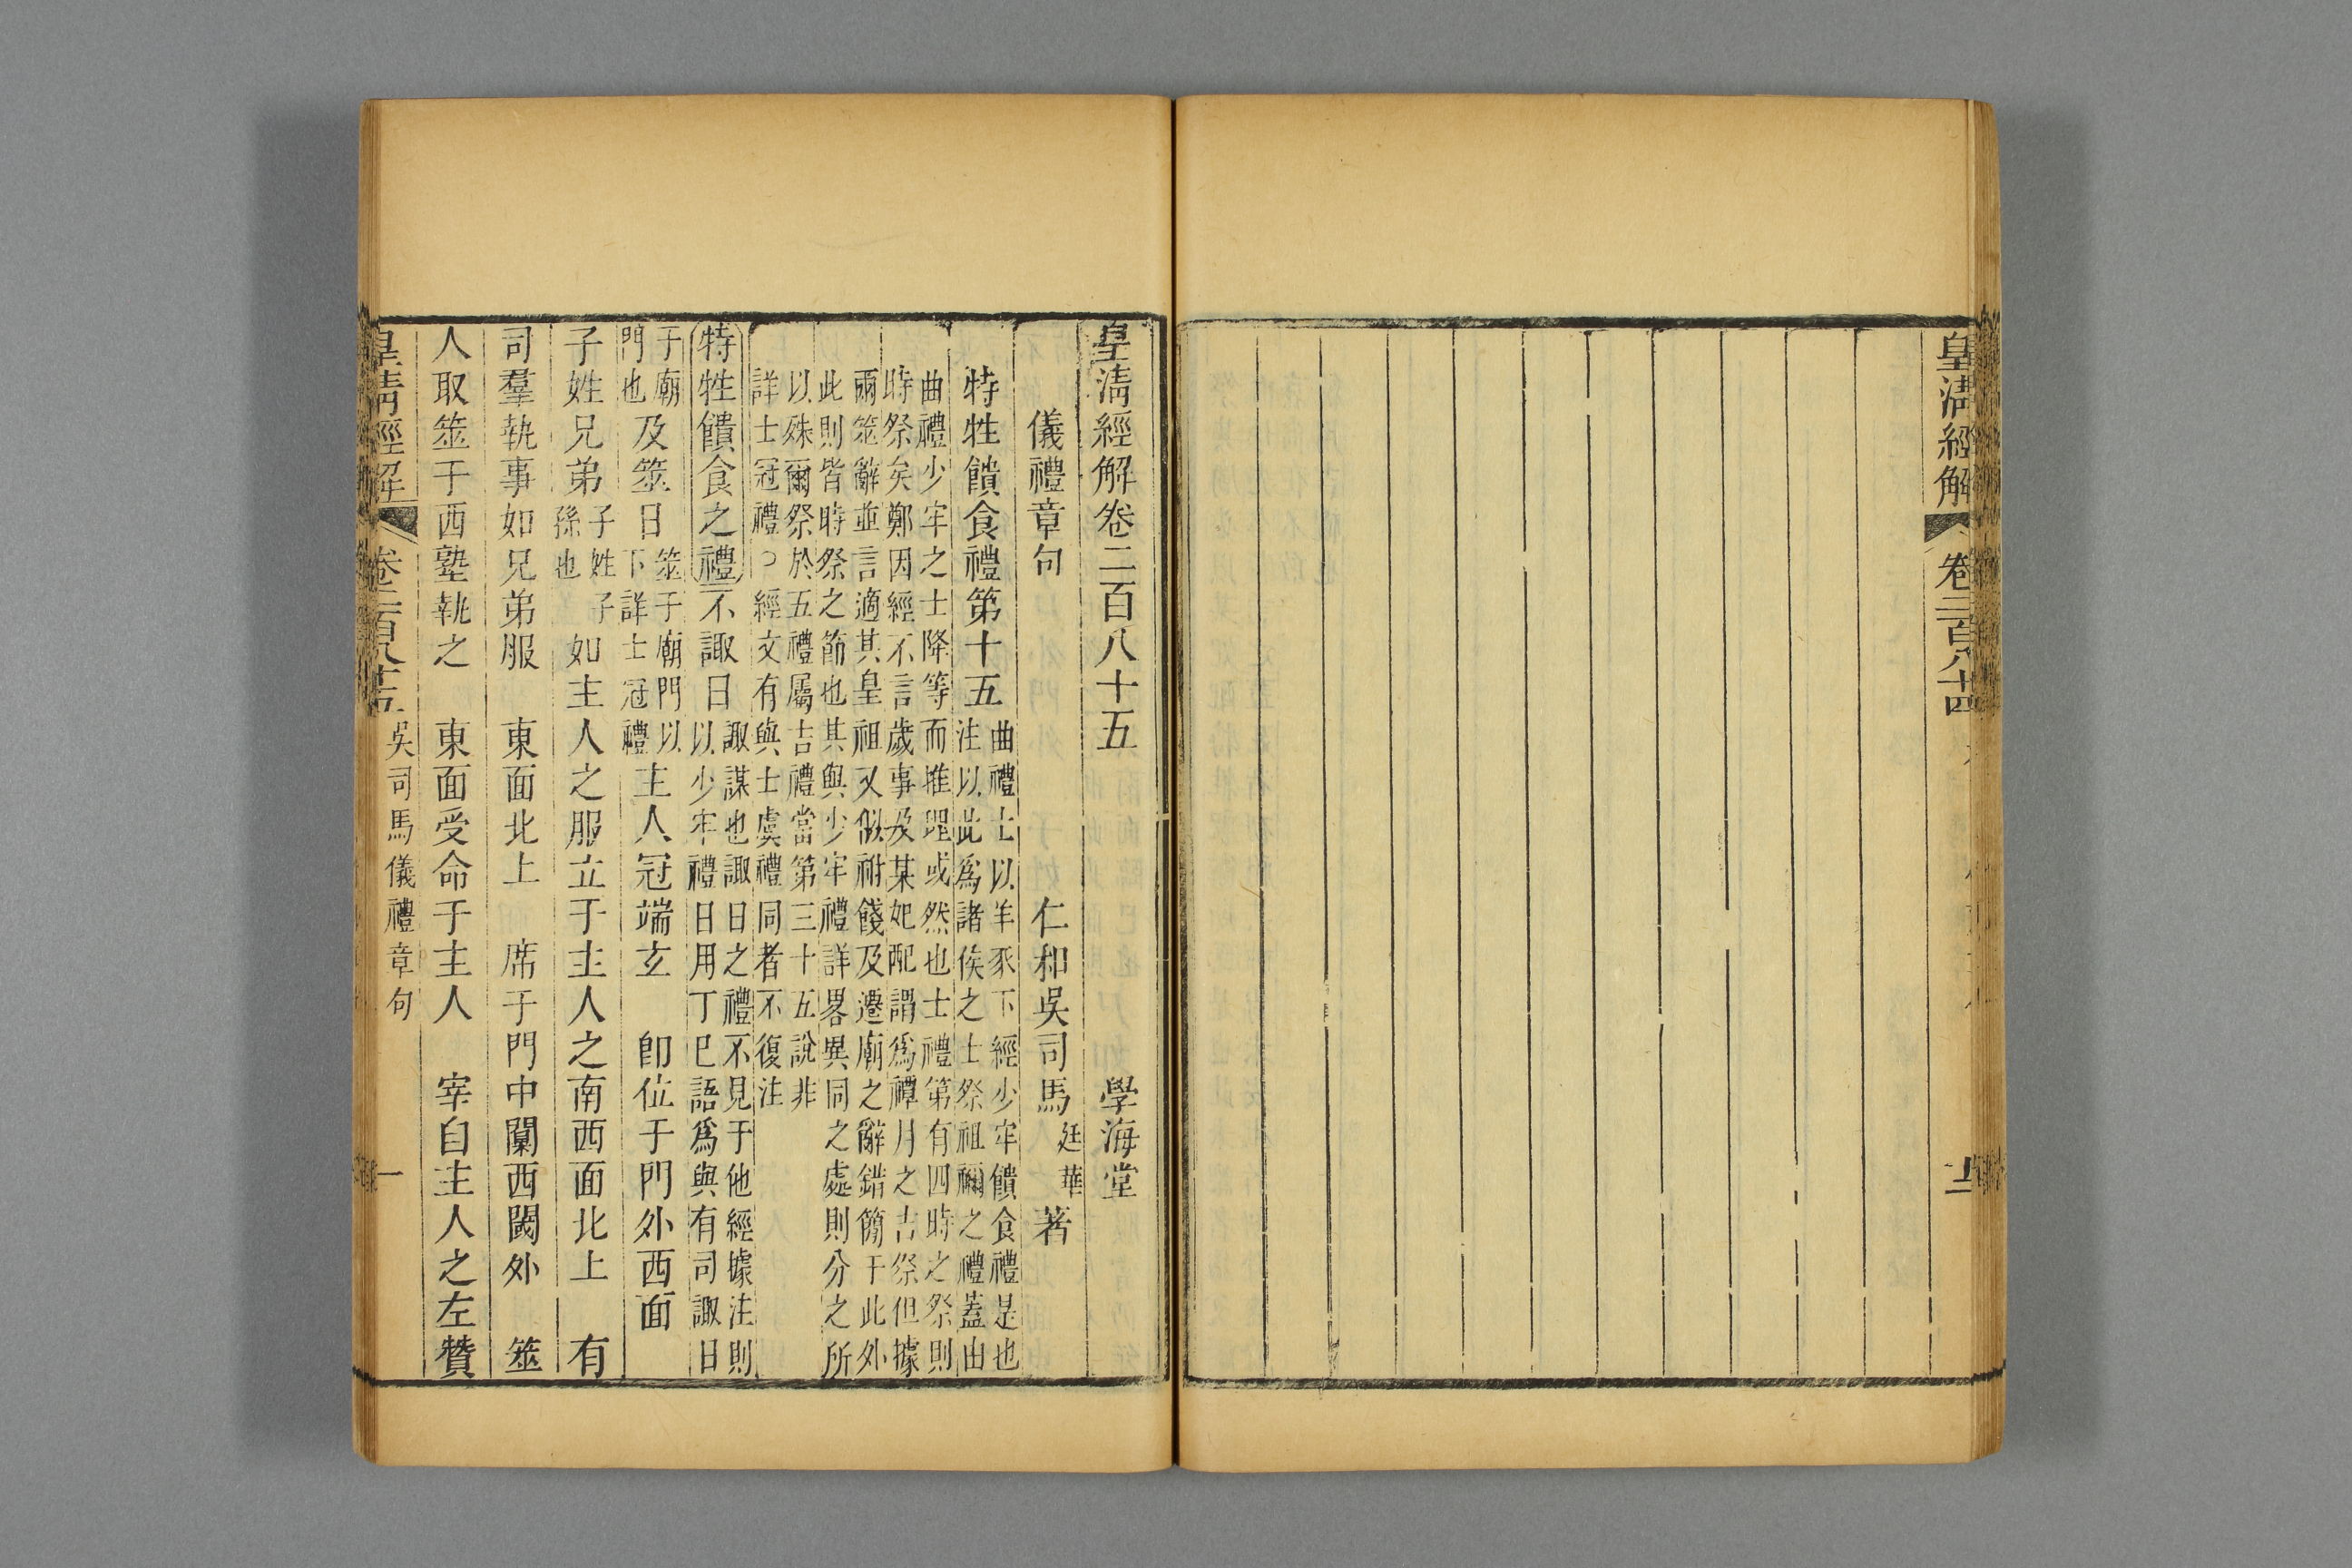 皇清經解 卷二百八十四
皇清經解卷二百八十五 學海堂
儀禮章句 仁和吳司馬廷華著
特牲饋食禮第十五 曲禮士以羊豕下經少牢饋食禮是也
注以此爲諸侯之士祭祖禰之禮蓋由
曲禮少牢之士降等而推理或然也士禮第有四時之祭則
時祭矣鄭因經不言歲事及某妃配謂爲禫月之吉祭但據
爾筮辭並言適其皇祖又似祔餞及遷廟之辭錯簡于此外
此則皆時祭之節也其與少牢禮詳畧異同之處則分之所
以殊爾祭於五禮屬吉禮當第三十五說非
詳士冠禮 經文有與士虞禮同者不復注
特牲饋食之禮不諏日 諏謀也諏日之禮不見于他經據注則
以少牢禮日用丁巳語爲與有司諏日
于廟
門也 及筮日 筮于廟門以
下詳士冠禮 主人冠端玄 卽位于門外西面
子姓兄弟 子姓子
孫也 如主人之服立于主人之南西面北上 有
司羣執事如兄弟服 東面北上 席于門中闑西閾外 筮
人取筮于西塾執之 東面受命于主人 宰自主人之左贊
皇清經解 卷二百八十五 吳司馬儀禮章句 一